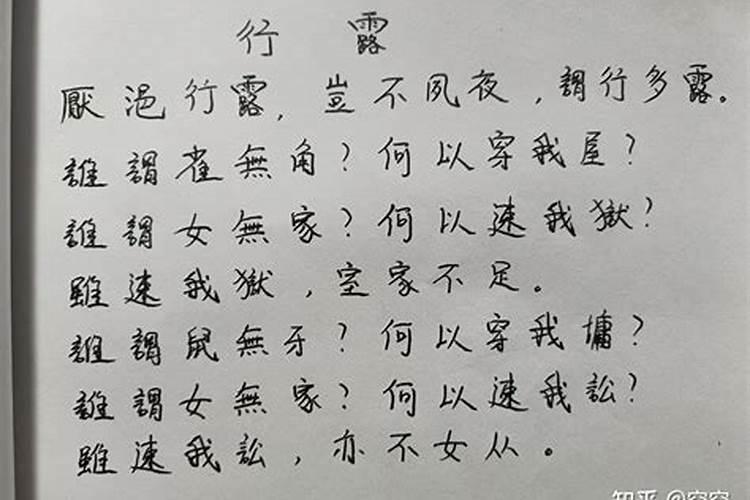 行 露
厭浥行露，豈不夙夜，謂行多露。
誰謂雀無角？何以穿我屋？
誰謂女無家？何以速我獄？
雖速我獄，室家不足。
誰謂鼠無牙？何以穿我墉？
誰謂女無家？何以速我訟？
雖速我訟，亦不女从。
知乎 @容容